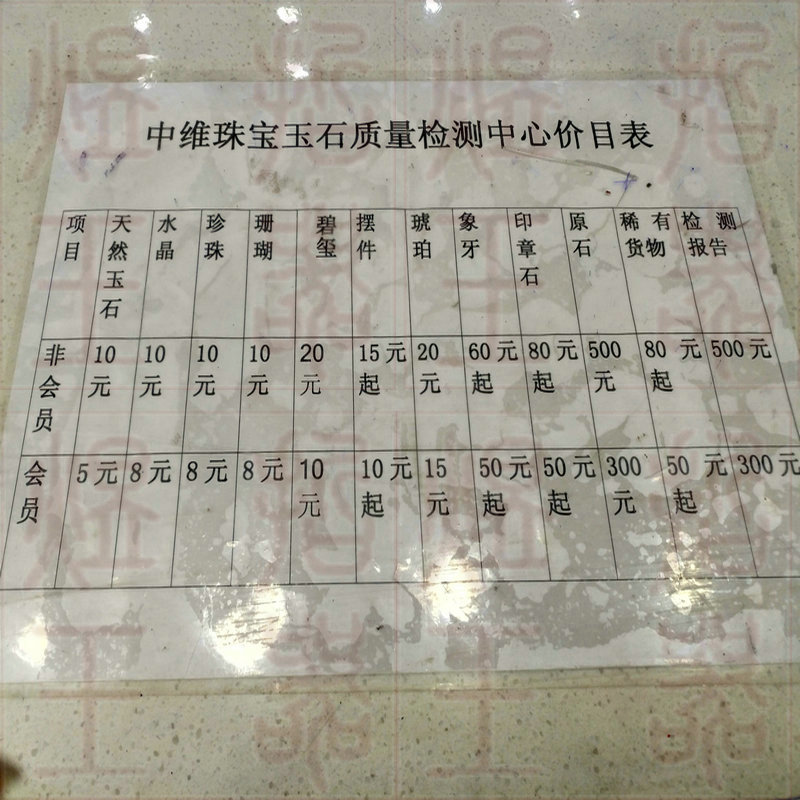 中维珠宝玉石质量检测中心价目表
项目 天然玉石 水晶 珍珠 珊瑚 碧玺 摆件 琥珀 象牙 印章石 原石 稀有货物 检测报告
非会员 10元 10元 10元 10元 20元 15元起 20元 60元起 80元起 500元 80元起 500元
会员 5元 8元 8元 8元 10元 10元起 15元 50元起 50元起 300元 50元起 300元